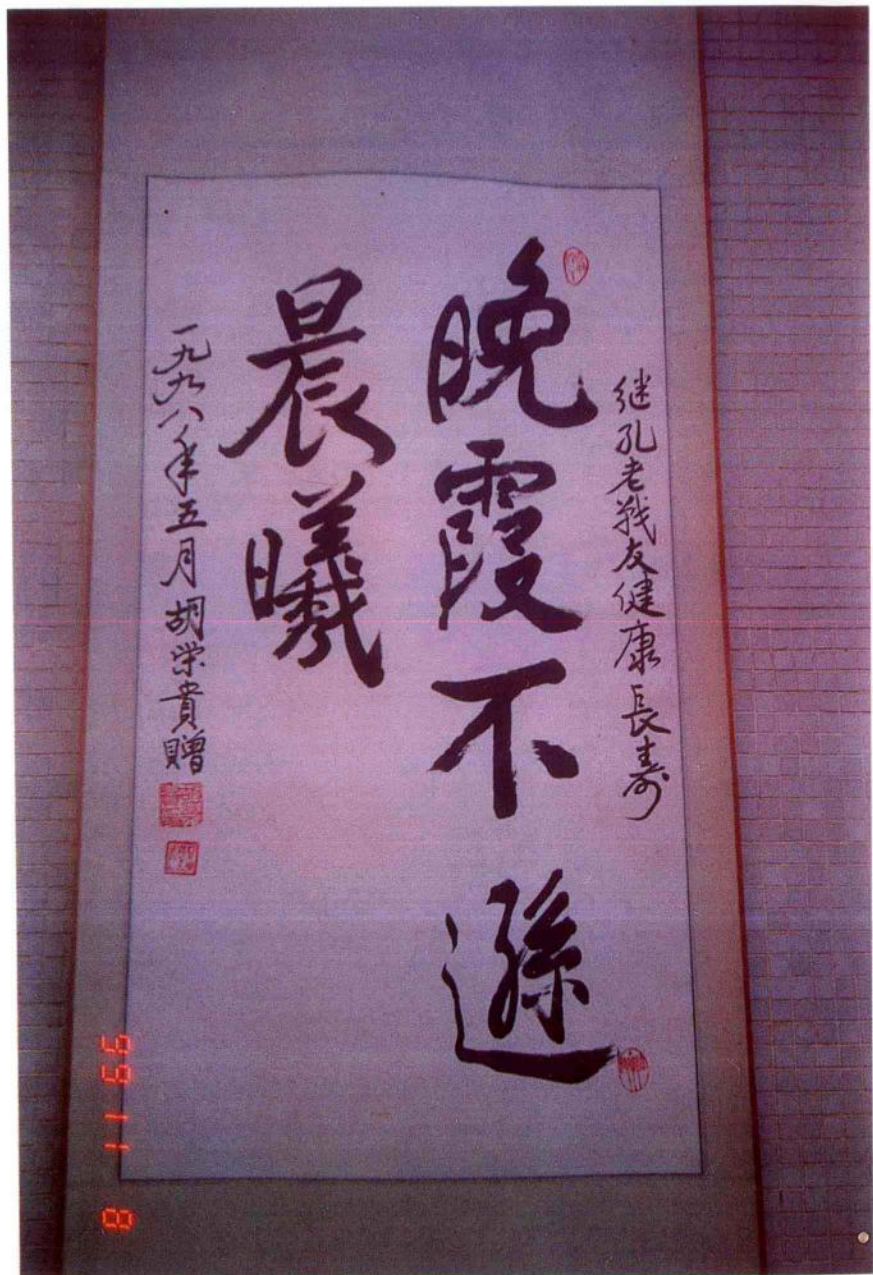 继孔老戰友健康長寿
晚霞不遜
晨曦
一九九八年五月胡荣貴贈
8 11 66